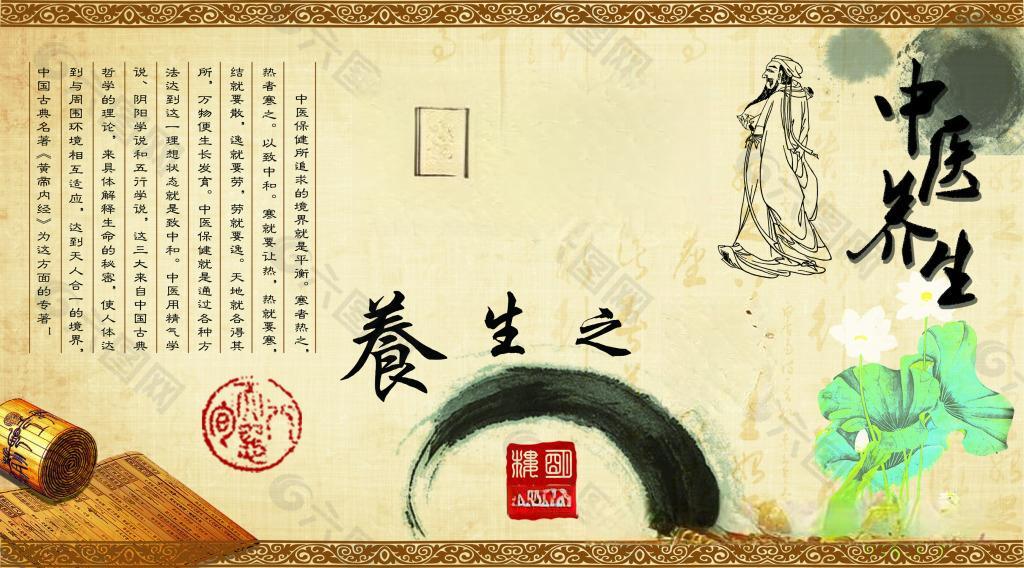 中医养生
中医保健所追求的境界就是平衡。寒者热之，
热者寒之。以致中和。寒就要让热，热就要寒，
结就要散，逸就要劳，劳就要逸。天地就各得其
所，万物便生长发育。中医保健就是通过各种方
法达到这一理想状态就是致中和。中医用精气学
说、阴阳学说和五行学说，这三大来自中国古典
哲学的理论，来具体解释生命的秘密，使人体达
到与周围环境相互适应，达到天人合一的境界，
中国古典名著《黄帝内经》为这方面的专著！
養生之
六图网